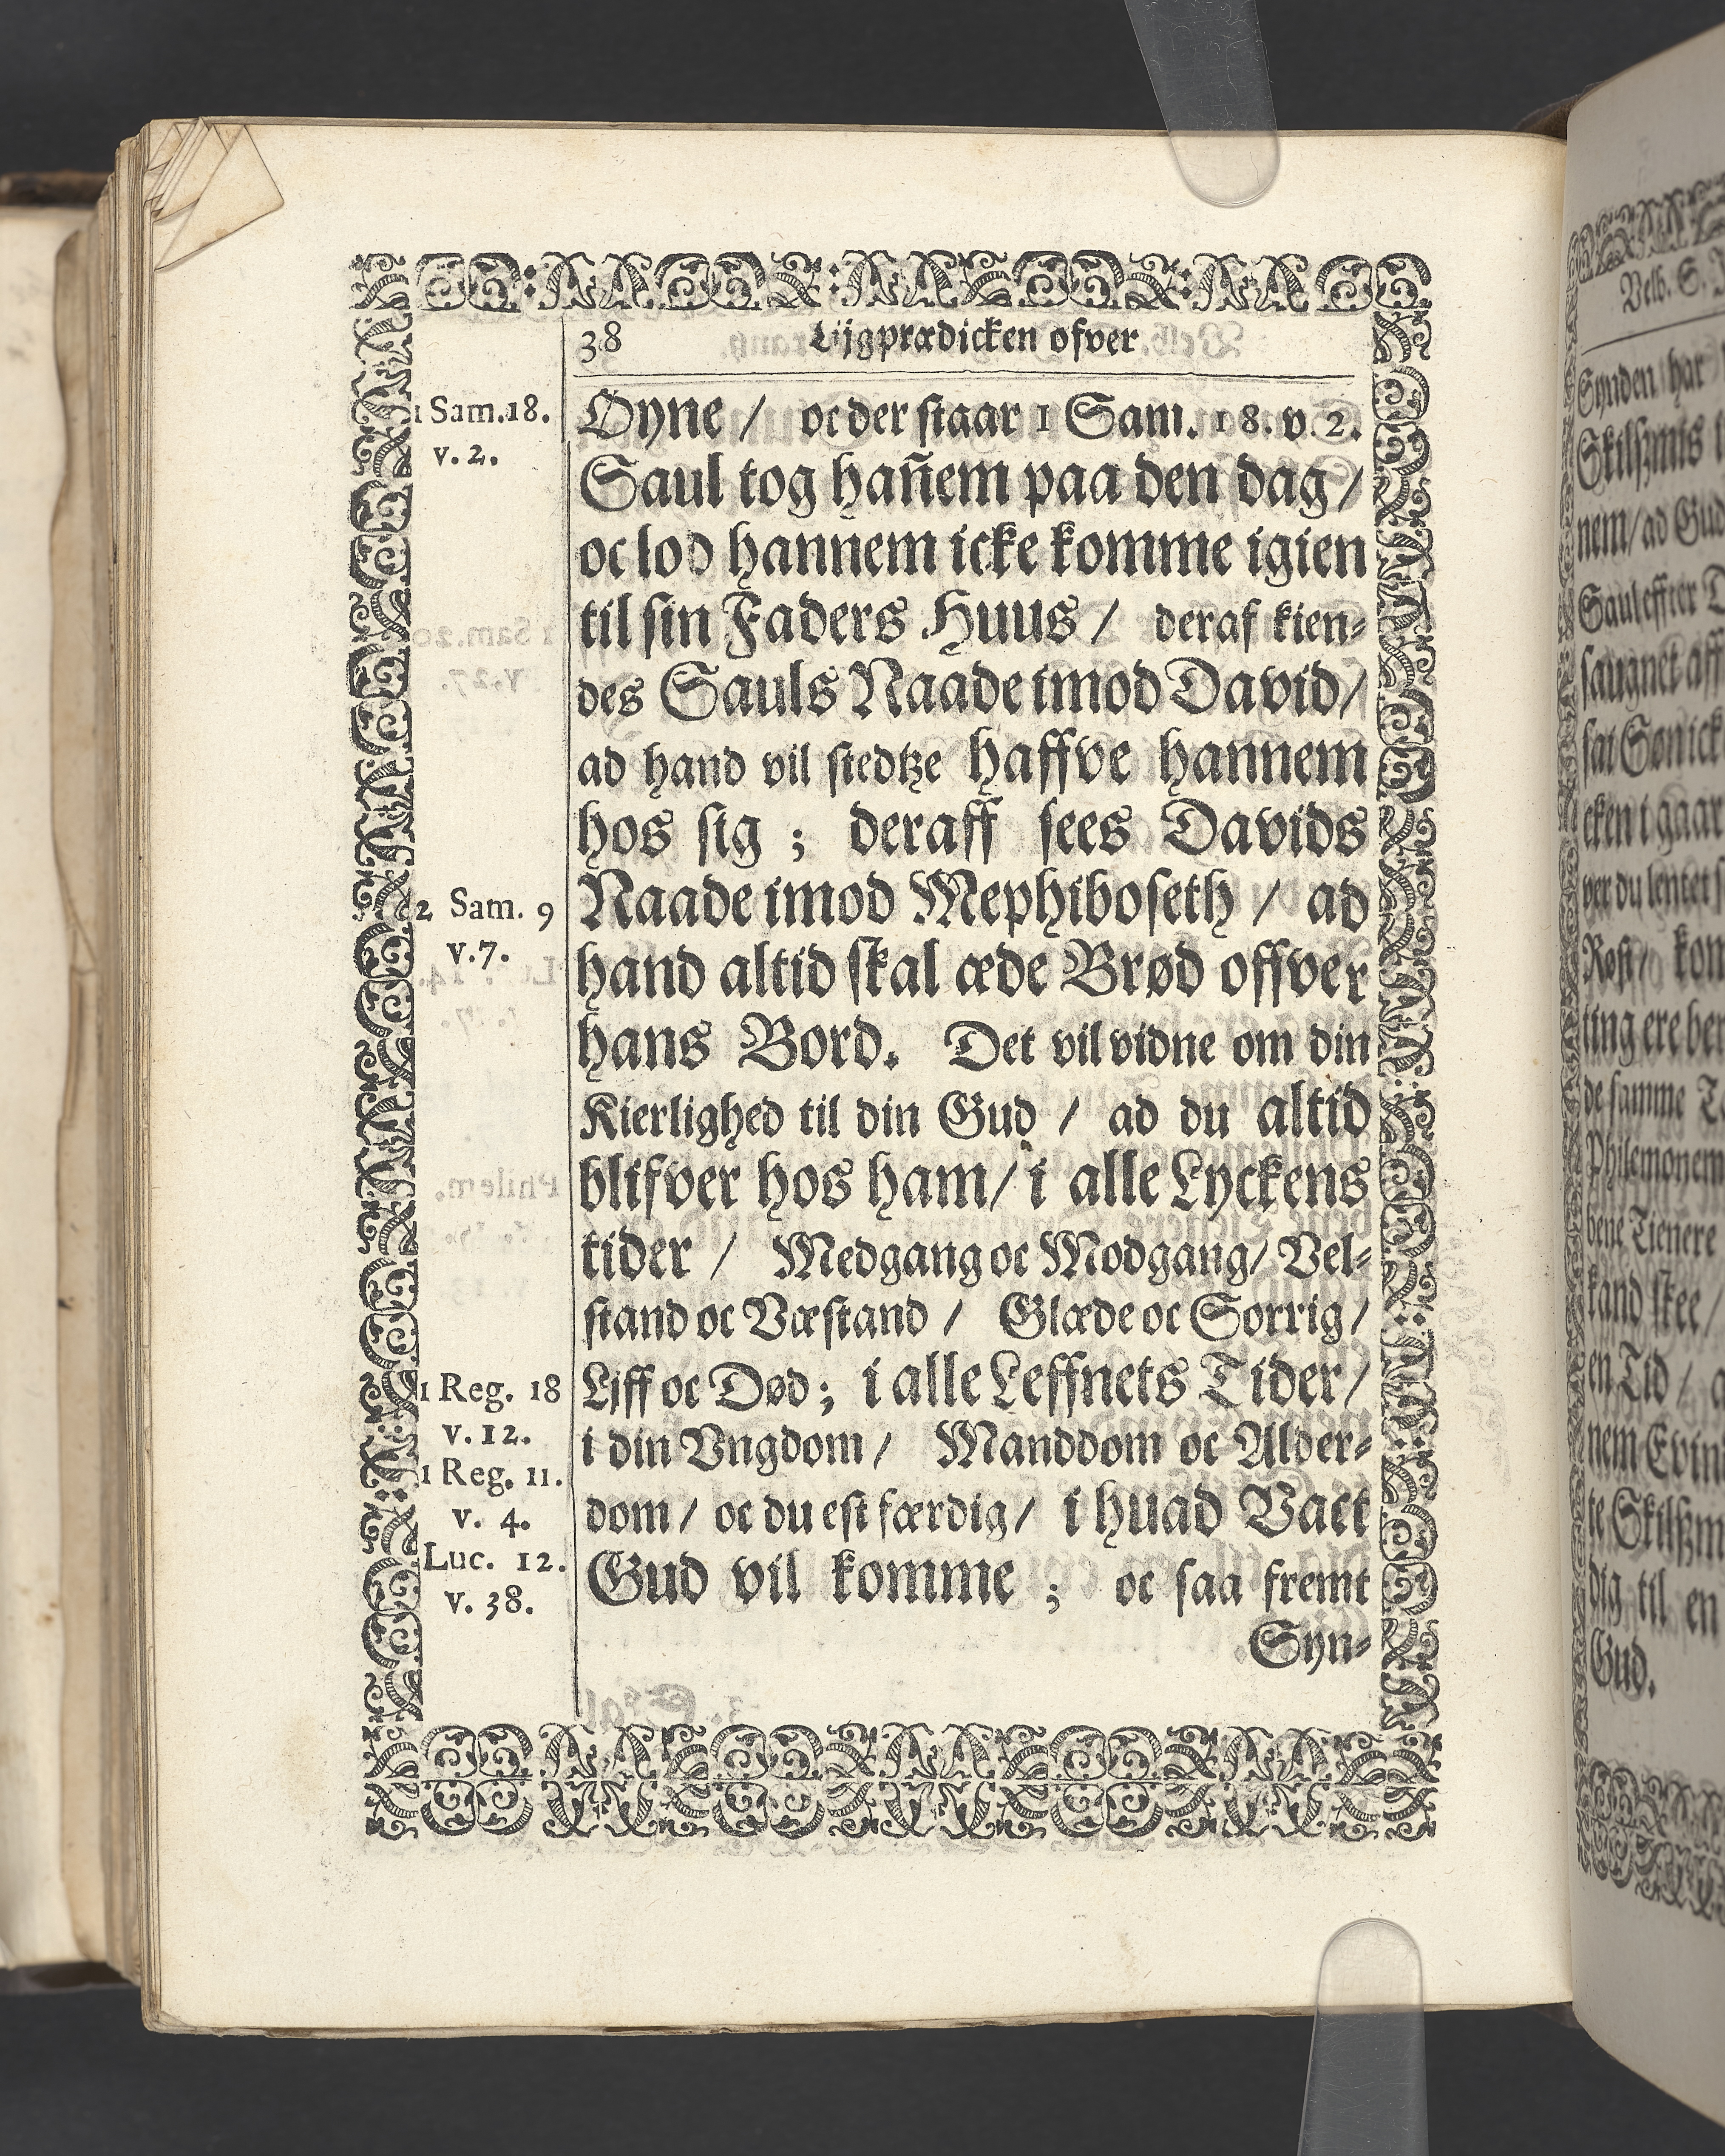 38 Lijgprædicken ofver
1 Sam. 18.
v. 2.
Øyne / oc der staar 1 Sam. 18. v. 2.
Saul tog hañem paa den dag /
oc lod hannem icke komme igien
til sin Faders Huus / deraf kien-
des Sauls Naade imod David /
ad hand vil stedtze haffve hannem
hos sig ; deraff sees Davids
2 Sam. 9
v. 7.
Naade imod Mephiboseth / ad
hand altid skal æde Brød offver
hans Bord. Det vil vidne om din
Kierlighed til din Gud / ad du altid
blifver hos ham / i alle Lyckens
tider / Medgang oc Modgang / Vel-
stand oc Væstand / Glæde oc Sorrig /
1 Reg. 18
v. 12.
1 Reg. 11.
v. 4.
Luc. 12.
v. 38.
Liff oc Død ; i alle Leffnets Tider /
i din Vngdom / Manddom oc Alder-
dom / oc du est færdig / i huad Vact
Gud vil komme ; oc saa fremt
Syn-
Velb. S.
Synden har
nem / ad Gud
Gud.